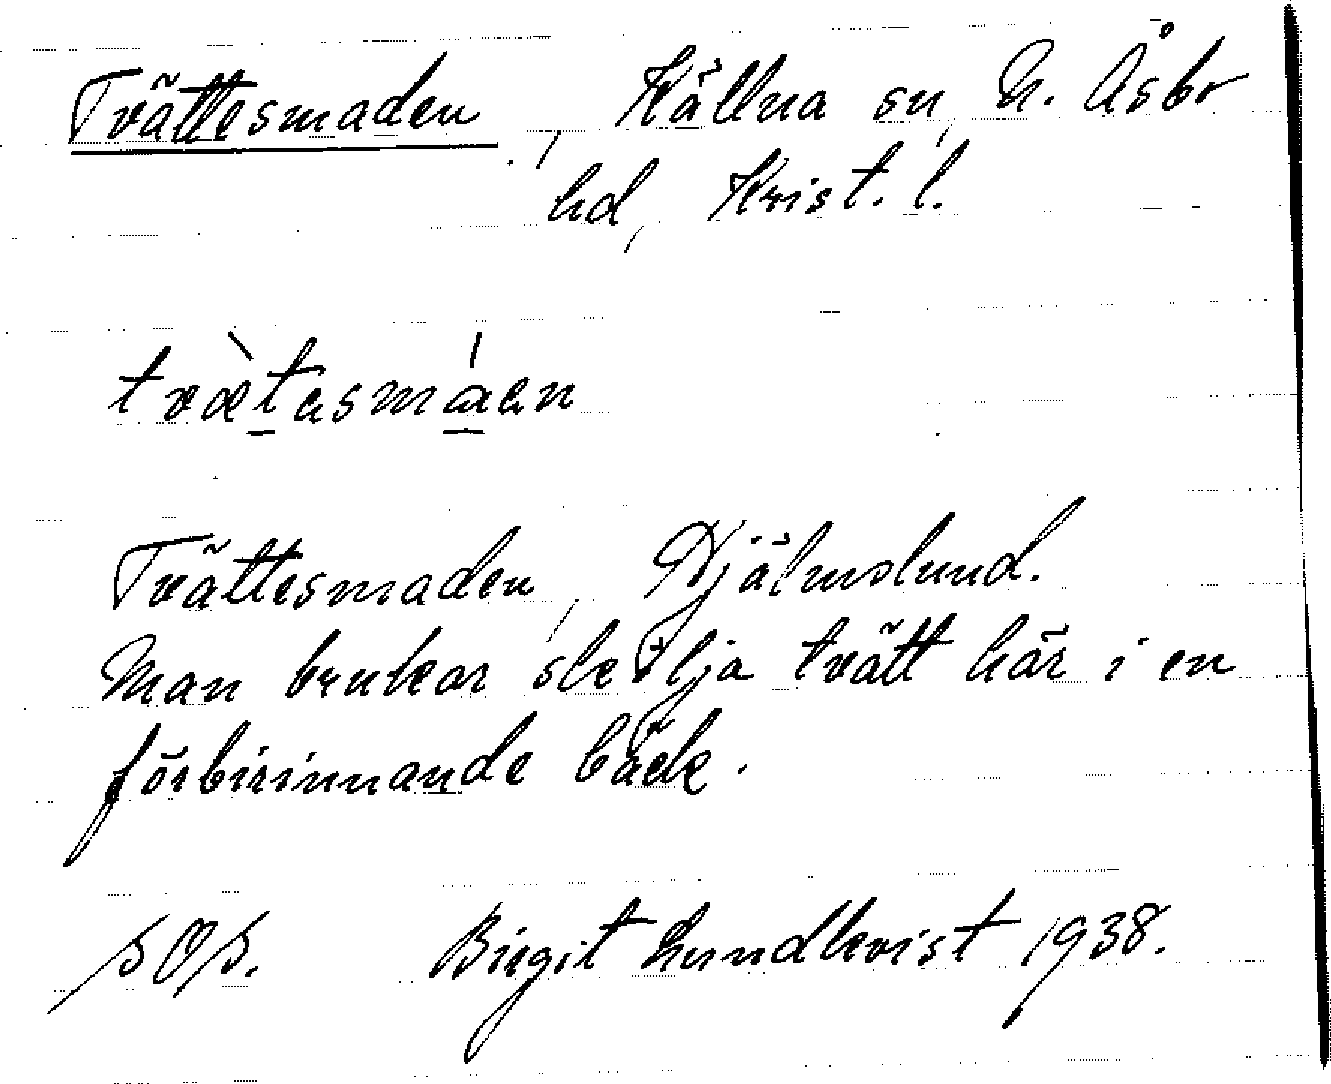 Tvättesmaden, Källna sn, N. Åsbo
hd, Krist. l.
tvætasmáen
Tvättesmaden, Djälmslund.
Man brukar skölja tvätt här i en
förbirinnande bäck.
Birgit Lundkvist 1938.